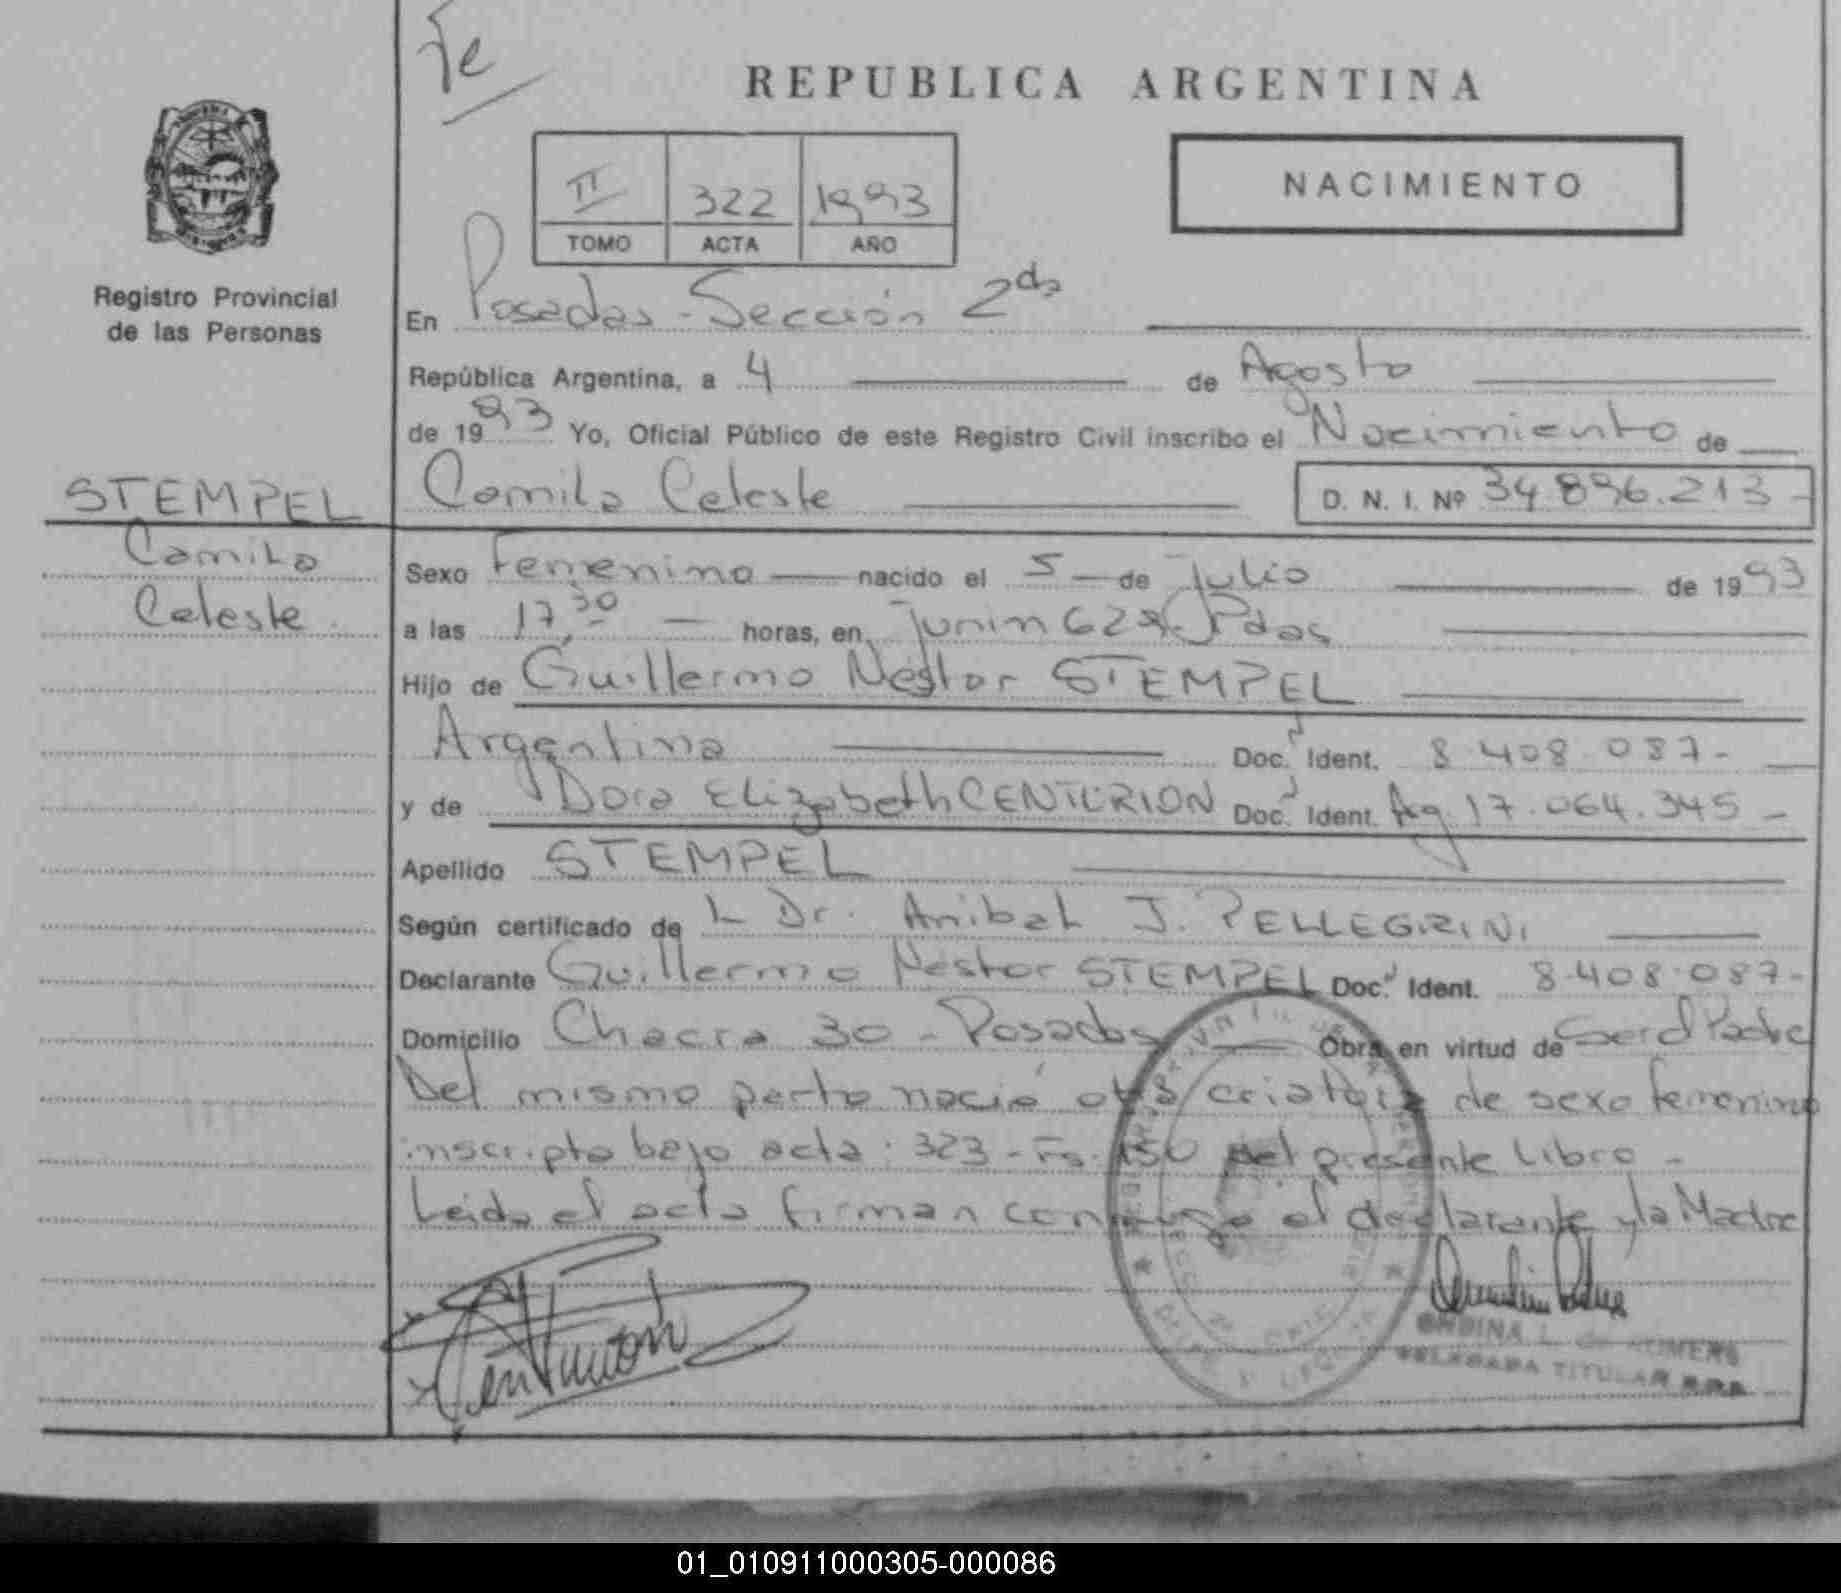 Fe
REPUBLICA ARGENTINA
II 322 1993
TOMO ACTA AÑO
NACIMIENTO
Registro Provincial
de las Personas
En Posadas - Sección 2da
República Argentina, a 4 de Agosto
de 1993 Yo, Oficial Público de este Registro Civil inscribo el Nacimiento de
STEMPEL
Camila Celeste D. N. I. Nº 34.896.213 -
Camila
Celeste
Sexo Femenino nacido el 5 de Julio de 1993
a las 17,30 horas, en Junin 629 Pdas
Hijo de Guillermo Nestor STEMPEL
Argentina Doc. Ident. 8.408.087 -
y de Dora Elizabeth CENTURION Doc. Ident. Ag. 17.064.345 -
Apellido STEMPEL
Según certificado de L Dr. Anibal J. PELLEGRINI
Declarante Guillermo Nestor STEMPEL Doc. Ident. 8.408.087 -
Domicilio Chacra 30 - Posadas Obra en virtud de Ser el Padre
Del mismo parto nació otra criatura de sexo femenino
inscripta bajo acta: 323 - Fs. 150 del presente Libro -
Leida el acta firman conmigo el declarante y la Madre
Centurion
DELEGADA TITULAR
01_010911000305-000086